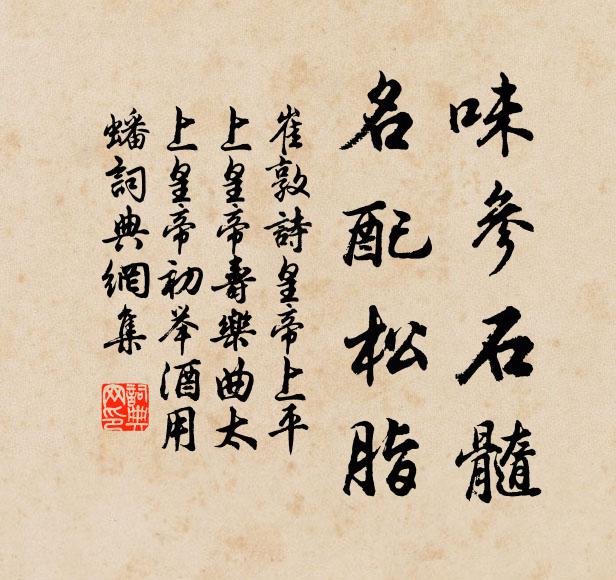 味參石髓
名配松脂
崔敦詩皇帝上平
上皇帝壽樂曲太
上皇帝初举酒用
蟠詞典網集
詞典
网印